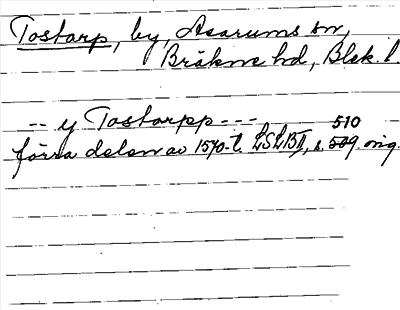 Tostarp, by, Asarums sn,
Bräkne hd, Blek. l.
-- y Tostarpp ---
510
förra delen av 1570-t. LSLBII, s. 509. orig.